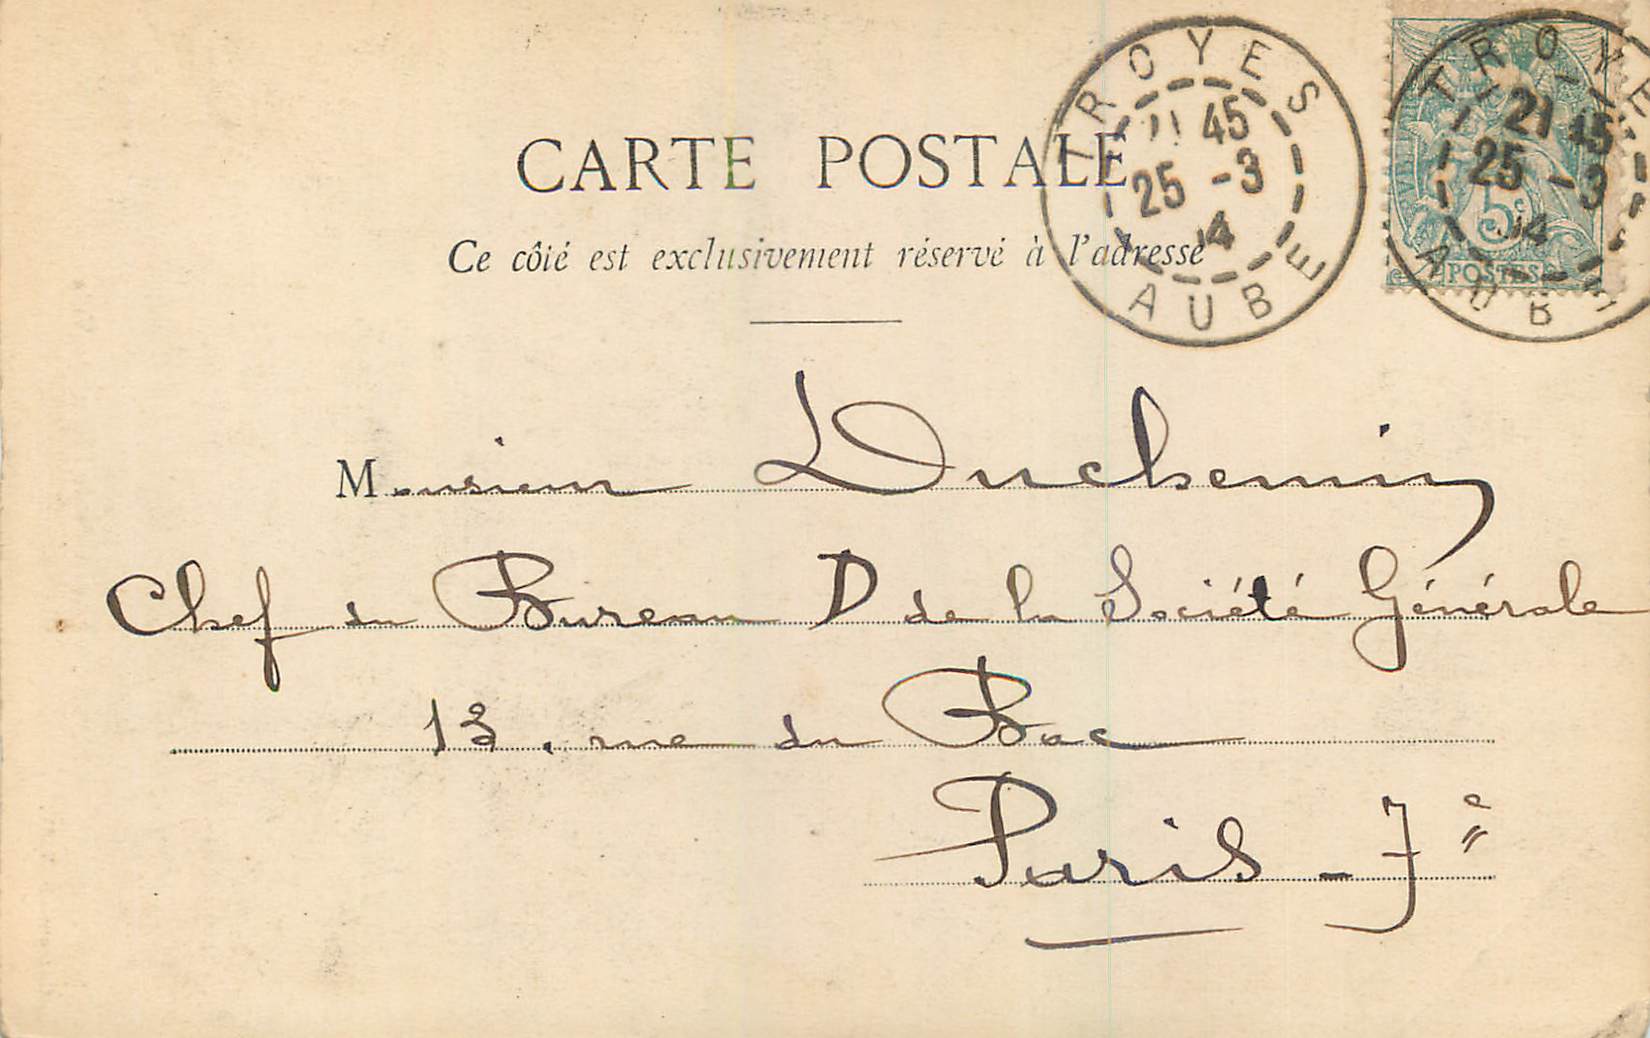 CARTE POSTALE
Ce côté est exclusivement réservé à l'adresse
TROYES
21 45
25 -3
04
AUBE
TROYES
21 45
25 -3
04
AUBE
5c
POSTES
Monsieur Duchemin
Chef du Bureau D de la Société Générale
13, rue du Bac
Paris - 7e